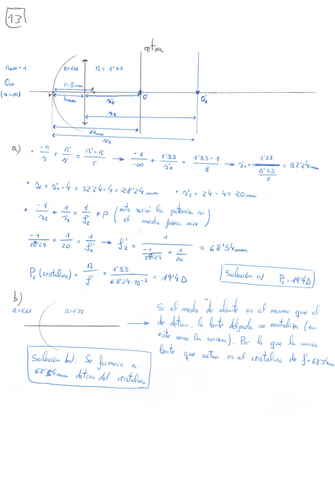 13
retina
naire = 1
n=1'33
n=1'33
r=8mm
O∞
(s=∞)
O'
O'1
4mm
s'2
s2
24mm
s'1
a)
• -n/s + n'/s' = n'-n/r → -1/-∞ + 1'33/s'1 = 1'33-1/8 → s'1 = 1'33/(0'33/8) = 32'24mm
• s2 = s'1 - 4 = 32'24 - 4 = 28'24mm • s'2 = 24 - 4 = 20mm
• -1/s2 + 1/s'2 = 1/f'2 ≠ P (esta sería la potencia si el medio fuera aire)
-1/28'24 + 1/20 = 1/f'2 → f'2 = 1/(-1/28'24 + 1/20) = 68'54mm
P2 (cristalino) = n/f' = 1'33/68'54·10⁻³ = 19'4D
Solución a) P2=19'4D
b)
n=1'33
n=1'33
Si el medio de delante es el mismo que el
de detrás, la lente delgada no contabiliza (en
este caso la córnea). Por lo que la única
lente que actúa es el cristalino de f'=68'54mm
Solución b). Se formará a
68'54mm detrás del cristalino